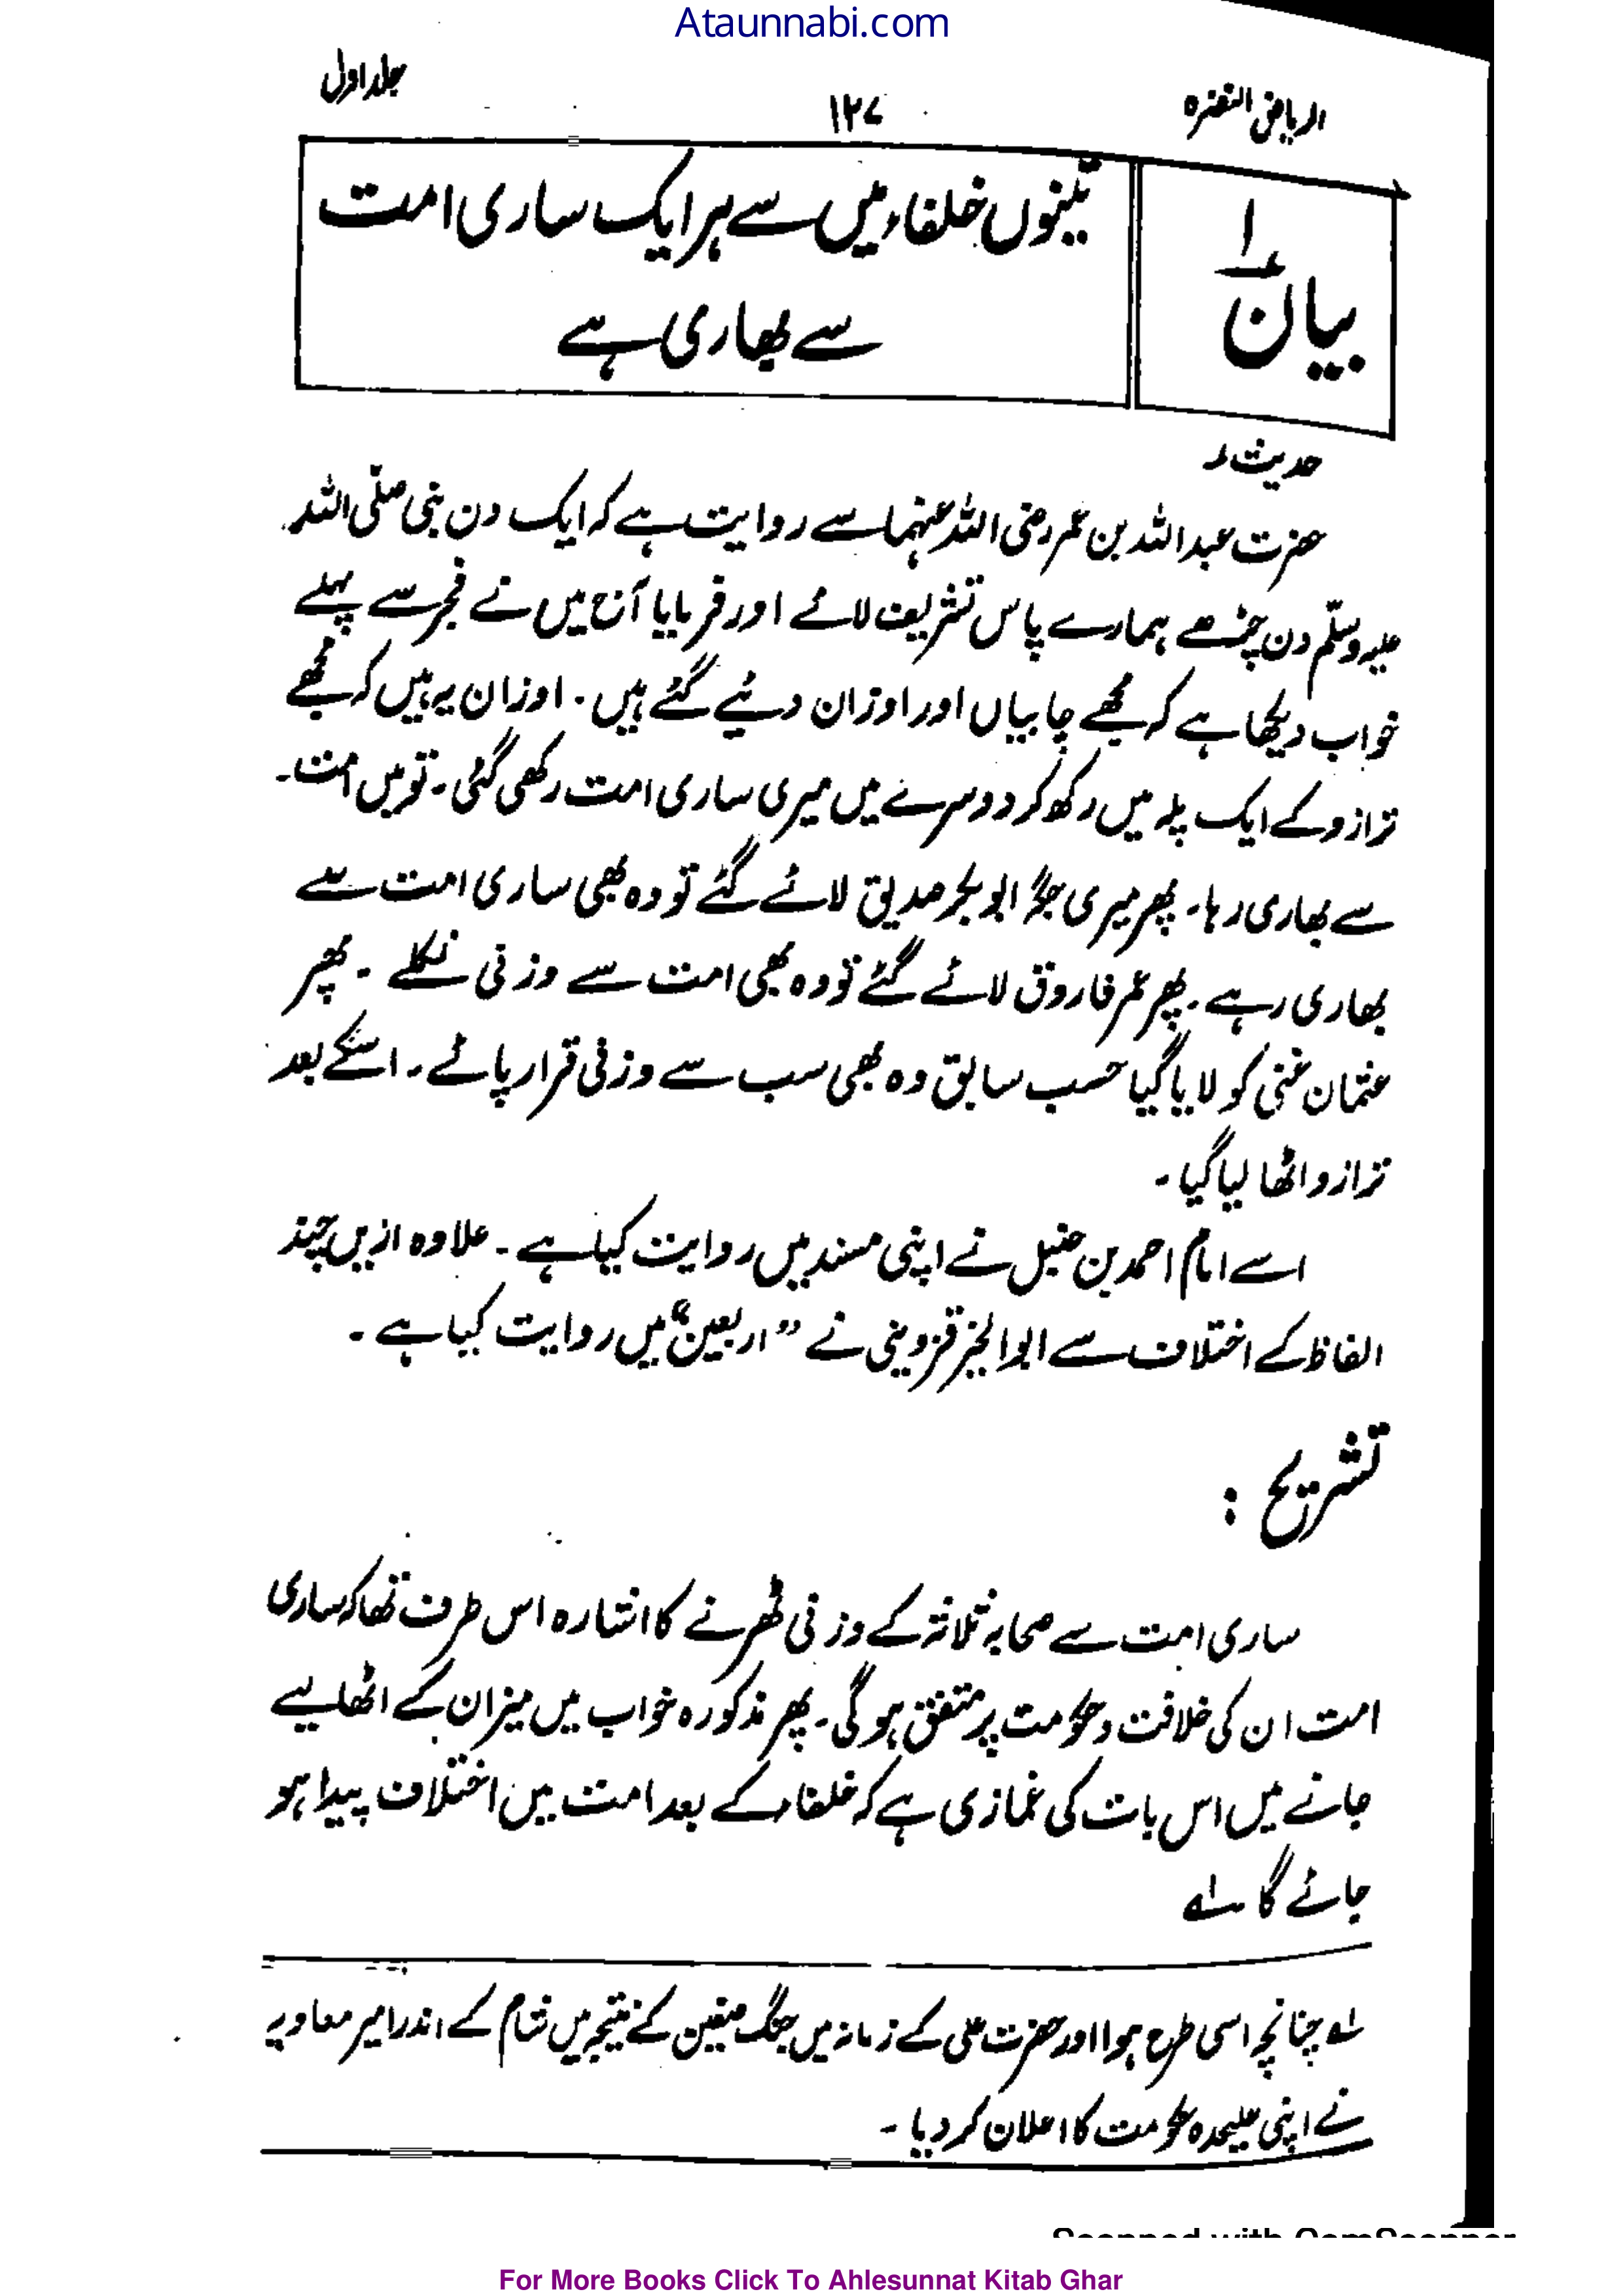 Ataunnabi.com
الریاض النضرہ ۱۲۷ جلد اول
بیان ۱
تینوں خلفاء میں سے ہر ایک ساری امت
سے بھاری ہے
حدیث ۱
حضرت عبداللہ بن عمر رضی اللہ عنہما سے روایت ہے کہ ایک دن نبی صلّی اللہ
علیہ وسلّم دن چڑھے ہمارے پاس تشریف لائے اور فرمایا آج میں نے فجر سے پہلے
خواب دیکھا ہے کہ مجھے چابیاں اور اوزان دئیے گئے ہیں ۔ اوزان یہ ہیں کہ مجھے
ترازو کے ایک پلہ میں رکھ کر دوسرے میں میری ساری امت رکھی گئی ۔ تو میں امت
سے بھاری رہا ۔ پھر میری جگہ ابو بکر صدیق لائے گئے تو وہ بھی ساری امت سے
بھاری رہے ۔ پھر عمر فاروق لائے گئے تو وہ بھی امت سے وزنی نکلے ۔ پھر
عثمان غنی کو لایا گیا حسب سابق وہ بھی سب سے وزنی قرار پائے ۔ اسکے بعد
ترازو اٹھا لیا گیا ۔
اسے امام احمد بن حنبل نے اپنی مسند میں روایت کیا ہے ۔ علاوہ ازیں چند
الفاظ کے اختلاف سے ابوالخیر قزوینی نے ”اربعین“ میں روایت کیا ہے ۔
تشریح :
ساری امت سے صحابہ ثلاثہ کے وزنی ٹھرنے کا اشارہ اس طرف تھا کہ ساری
امت ان کی خلافت و حکومت پر متفق ہو گی ۔ پھر مذکورہ خواب میں میزان کے اٹھا لیے
جانے میں اس بات کی غمازی ہے کہ خلفاء کے بعد امت میں اختلاف پیدا ہو
جائے گا ۱؎
۱؎ چنانچہ اسی طرح ہوا اور حضرت علی کے زمانہ میں جنگ صفین کے نتیجہ میں شام کے اندر امیر معاویہ
نے اپنی علیحدہ حکومت کا اعلان کر دیا ۔
Scanned with CamScanner
For More Books Click To Ahlesunnat Kitab Ghar